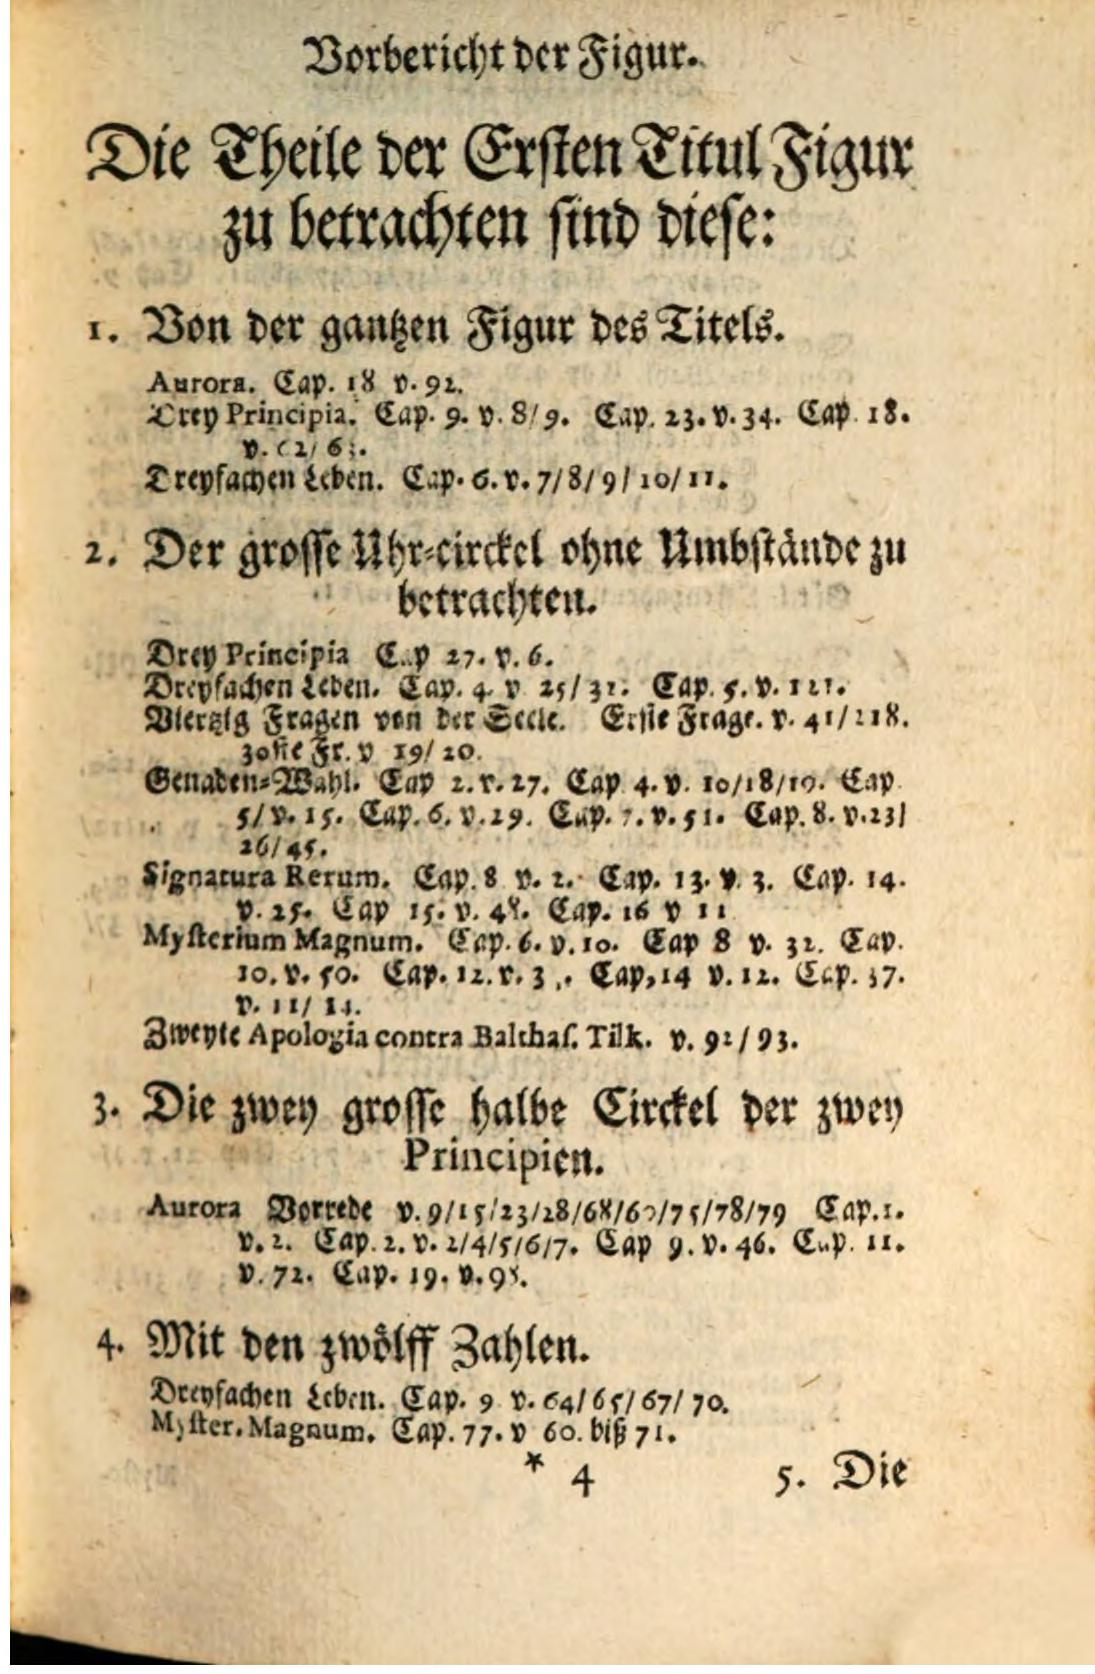 Vorbericht der Figur.
Die Theile der Ersten Titul Figur
zu betrachten sind diese:
1. Von der gantzen Figur des Titels.
Aurora. Cap. 18 v. 92.
Drey Principia. Cap. 9. v. 8/9. Cap. 23. v. 34. Cap 18.
v. 62/63.
Dreyfachen Leben. Cap. 6. v. 7/8/9/10/11.
2. Der grosse Uhr-circkel ohne Umbstände zu
betrachten.
Drey Principia Cap 27. v. 6.
Dreyfachen Leben. Cap. 4. v 25/31. Cap. 5. v. 121.
Viertzig Fragen von der Seele. Erste Frage. v. 41/218.
30ste Fr. v 19/20.
Genaden-Wahl. Cap 2. v. 27. Cap 4. v. 10/18/19. Cap
5/v. 15. Cap. 6. v. 29. Cap. 7. v. 51. Cap. 8. v. 23/
26/45.
Signatura Rerum. Cap. 8 v. 2. Cap. 13. v. 3. Cap. 14.
v. 25. Cap 15. v. 48. Cap. 16 v 11
Mysterium Magnum. Cap. 6. v. 10. Cap 8 v. 32. Cap.
10. v. 50. Cap. 12. v. Cap, 14 v. 12. Cap. 37.
v. 11/14.
Zweyte Apologia contra Balthas. Tilk. v. 92/93.
3. Die zwey grosse halbe Circkel der zwey
Principien.
Aurora Vorrede v. 9/15/23/28/68/69/75/78/79 Cap. 1.
v. 2. Cap. 2. v. 2/4/5/6/7. Cap 9. v. 46. Cap. 11.
v. 72. Cap. 19. v. 98.
4. Mit den zwölff Zahlen.
Dreyfachen Leben. Cap. 9 v. 64/65/67/70.
Myster. Magnum. Cap. 77. v 60. biß 71.
* 4 5. Die